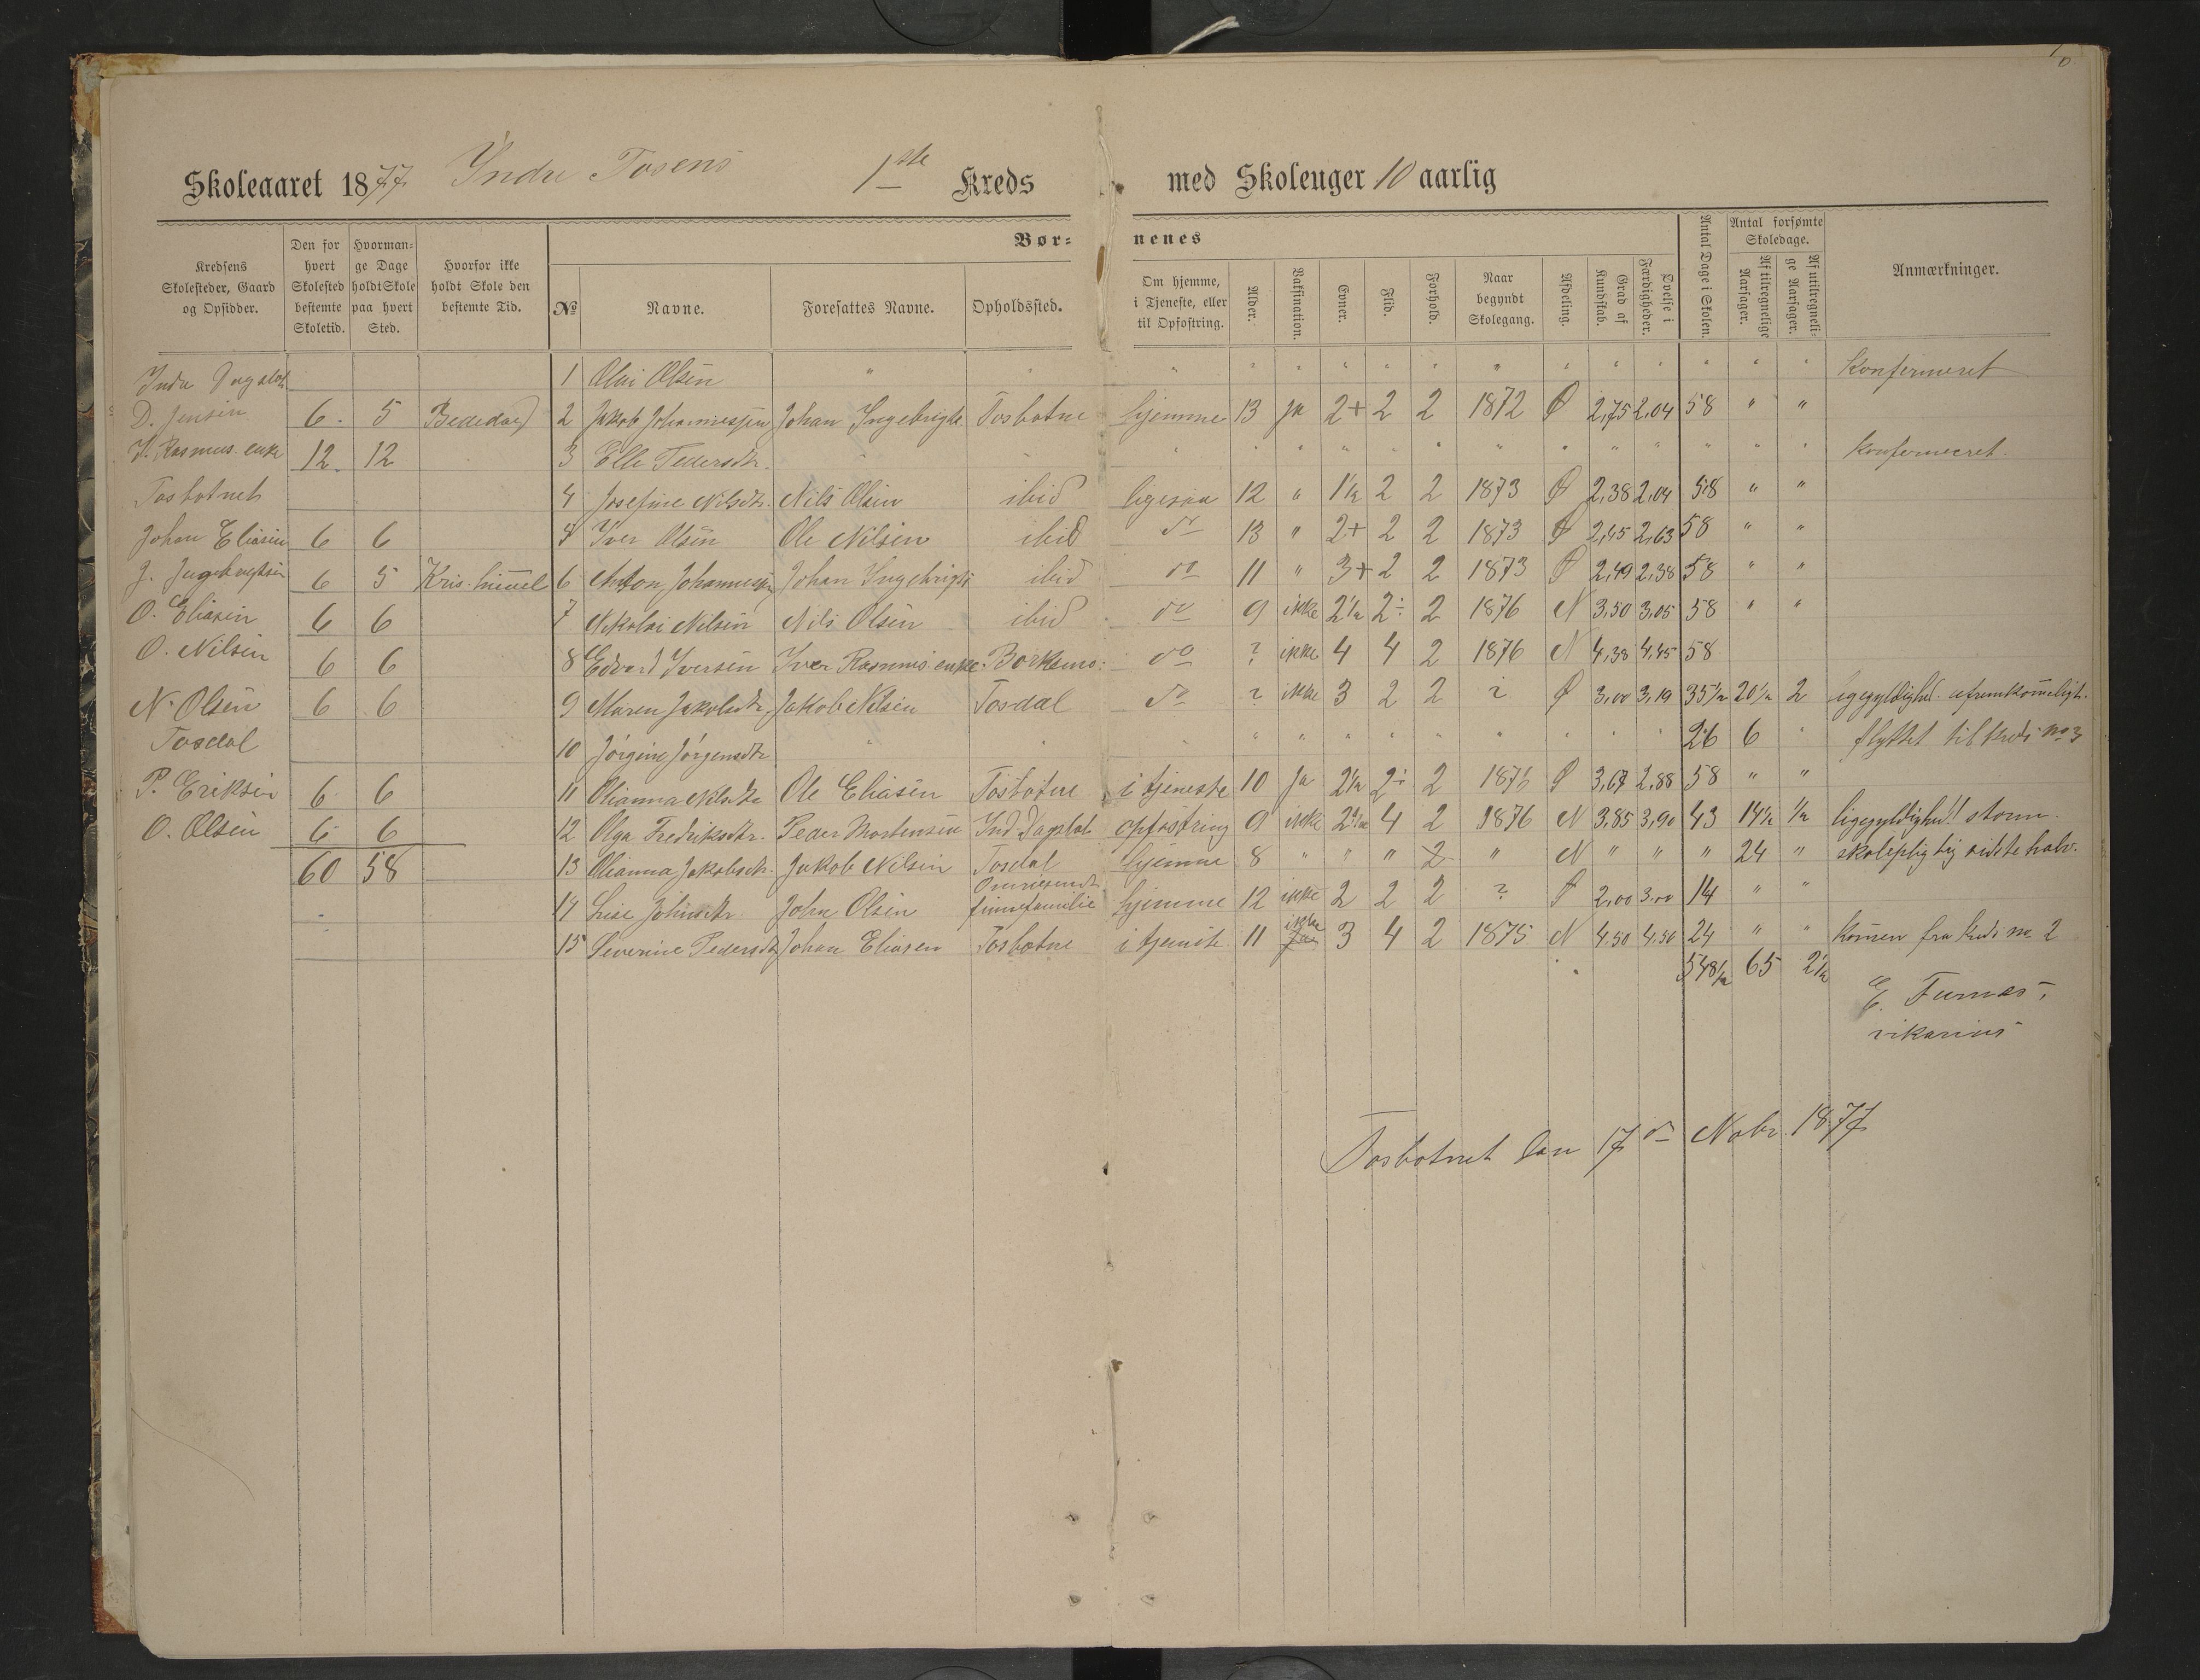 Skoleaaret 1877 Yndre Tosens 1ste Kreds med Skoleuger 10 aarlig
Kredsens Skolesteder, Gaard og Opsidder.
Den for hvert Skolested bestemte Skoletid.
Hvormange Dage holdt Skole paa hvert Sted.
Hvorfor ikke holdt Skole den bestemte Tid.
Børnenes
№
Navne.
Foresattes Navne.
Opholdssted.
Om hjemme, i Tjeneste, eller til Opfostring.
Alder.
Vaksination.
Evner.
Flid.
Forhold.
Naar begyndt Skolegang.
Afdeling.
Grad af Kundskab.
Øvelse i Færdigheder.
Antal Dage i Skolen.
Antal forsømte Skoledage.
Af tilregnelige Aarsager.
Af utilregnelige Aarsager.
Anmærkninger.
1 Olai Olsen " " " " " " " " " " " " " " " " Konfermeret
D. Jensen 6. 5 Bededag 2 Jakob Johannessen Johan Ingebrigts. Tosbotne hjemme 13 ja 2+ 2 2 1872 Ø 2,75 2,04 58 " "
Rasmus. enke 12. 12 3 Elle Pedersdtr. " " " " " " " " " " " " " Konfermeret.
Tosbotnet 4 Josefine Nilsdtr. Nils Olsen ibid ligesaa 12 " 1½ 2 2 1873 Ø 2,38 2,04 58 " "
Johan Eliasen 6 6 5 Iver Olsen Ole Nilsen ibid do 13 " 2+ 2 2 1873 Ø 2,45 2,63 58 " "
J. Ingebrigtsen 6 5 Kris. himmel 6 Anton Johannessen Johan Ingebrigts ibid do 11 " 3+ 2 2 1873 Ø 2,49 2,38 58 " "
O. Eliasen 6 6 7 Nikolai Nilsen Nils Olsen ibid do 9 ikke 2½ 2÷ 2 1876 N 3,50 3,05 58 " "
O. Nilsen 6 6 8 Edvard Iversen Iver Rasmus. enke Borkamo: do ? ikke 4 4 2 1876 N 4,38 4,45 58
N. Olsen 6 6 9 Maren Jakobsdtr. Jakob Nilsen Tosdal do ? ikke 3 2 2 ? Ø 3,00 3,19 35½ 20½ 2 ligegyldighed. ufremkommeligh.
Tosdal 10 Jørgine Jørgensdtr " " " " " " " " " " " " 26 6 " flyttet til Kreds no 3
P. Eriksen 6 6 11 Olianna Nilsdtr Ole Eliasen Tosbotne i tjeneste 10 ja 2½ 2÷ 2 1875 Ø 3,67 2,88 58 " "
O. Olsen 6 6 12 Olga Fredriksdtr. Peder Mortensen Ind. Dagslot opfostring 9 ikke 2½ 4 2 1876 N 3,85 3,90 43 14½ ½ ligegyldighed! storm.
60 58 13 Olianna Jakobsdtr. Jakob Nilsen Tosdal hjemme 8 " " " 2 " N " " " 24 " skolepligtig sidste halv.
14 Lise Johnsdtr. John Olsen finnefamilie hjemme 12 ikke 2 2 2 ? Ø 2,00 3,00 14 " "
15 Severine Pedersdtr Johan Eliasen Tosbotne i tjeneste 11 ikke 3 4 2 1875 N 4,50 4,50 24 " " Kommen fra Kreds no 2
548½ 65 2½
E. Fumas,
vikarius
Tosbotnet den 17de Nobr. 1877